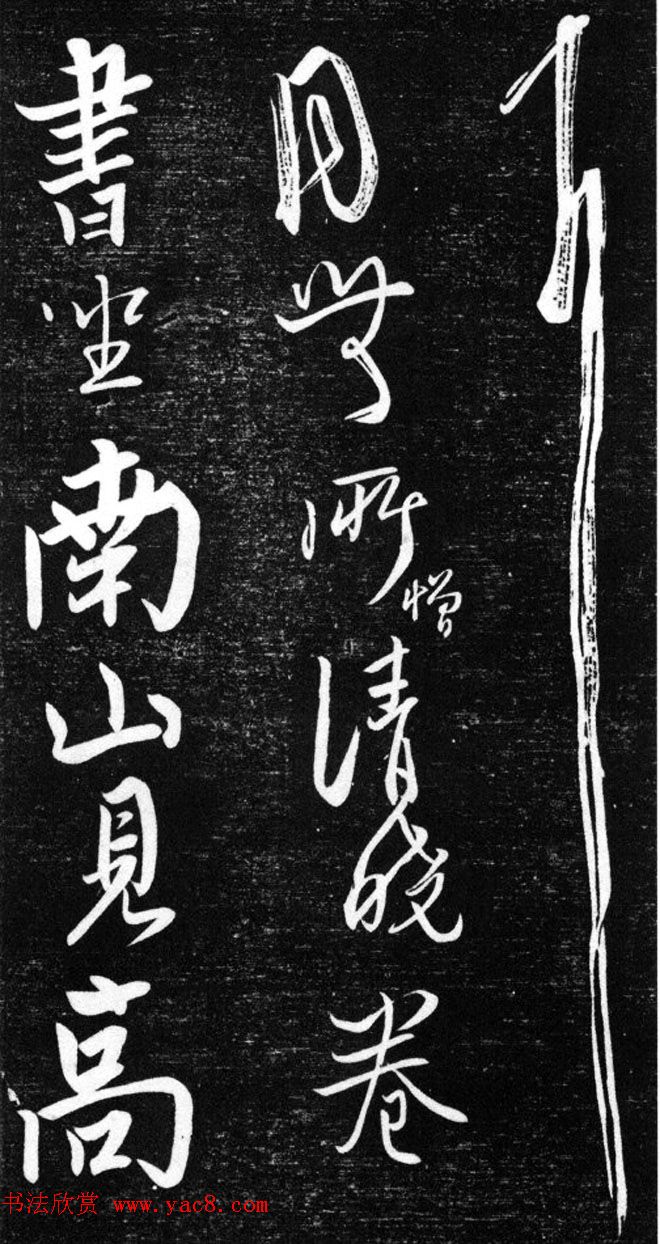 目無所憎清曉卷
書坐南山見高
书法欣赏 www.yac8.com